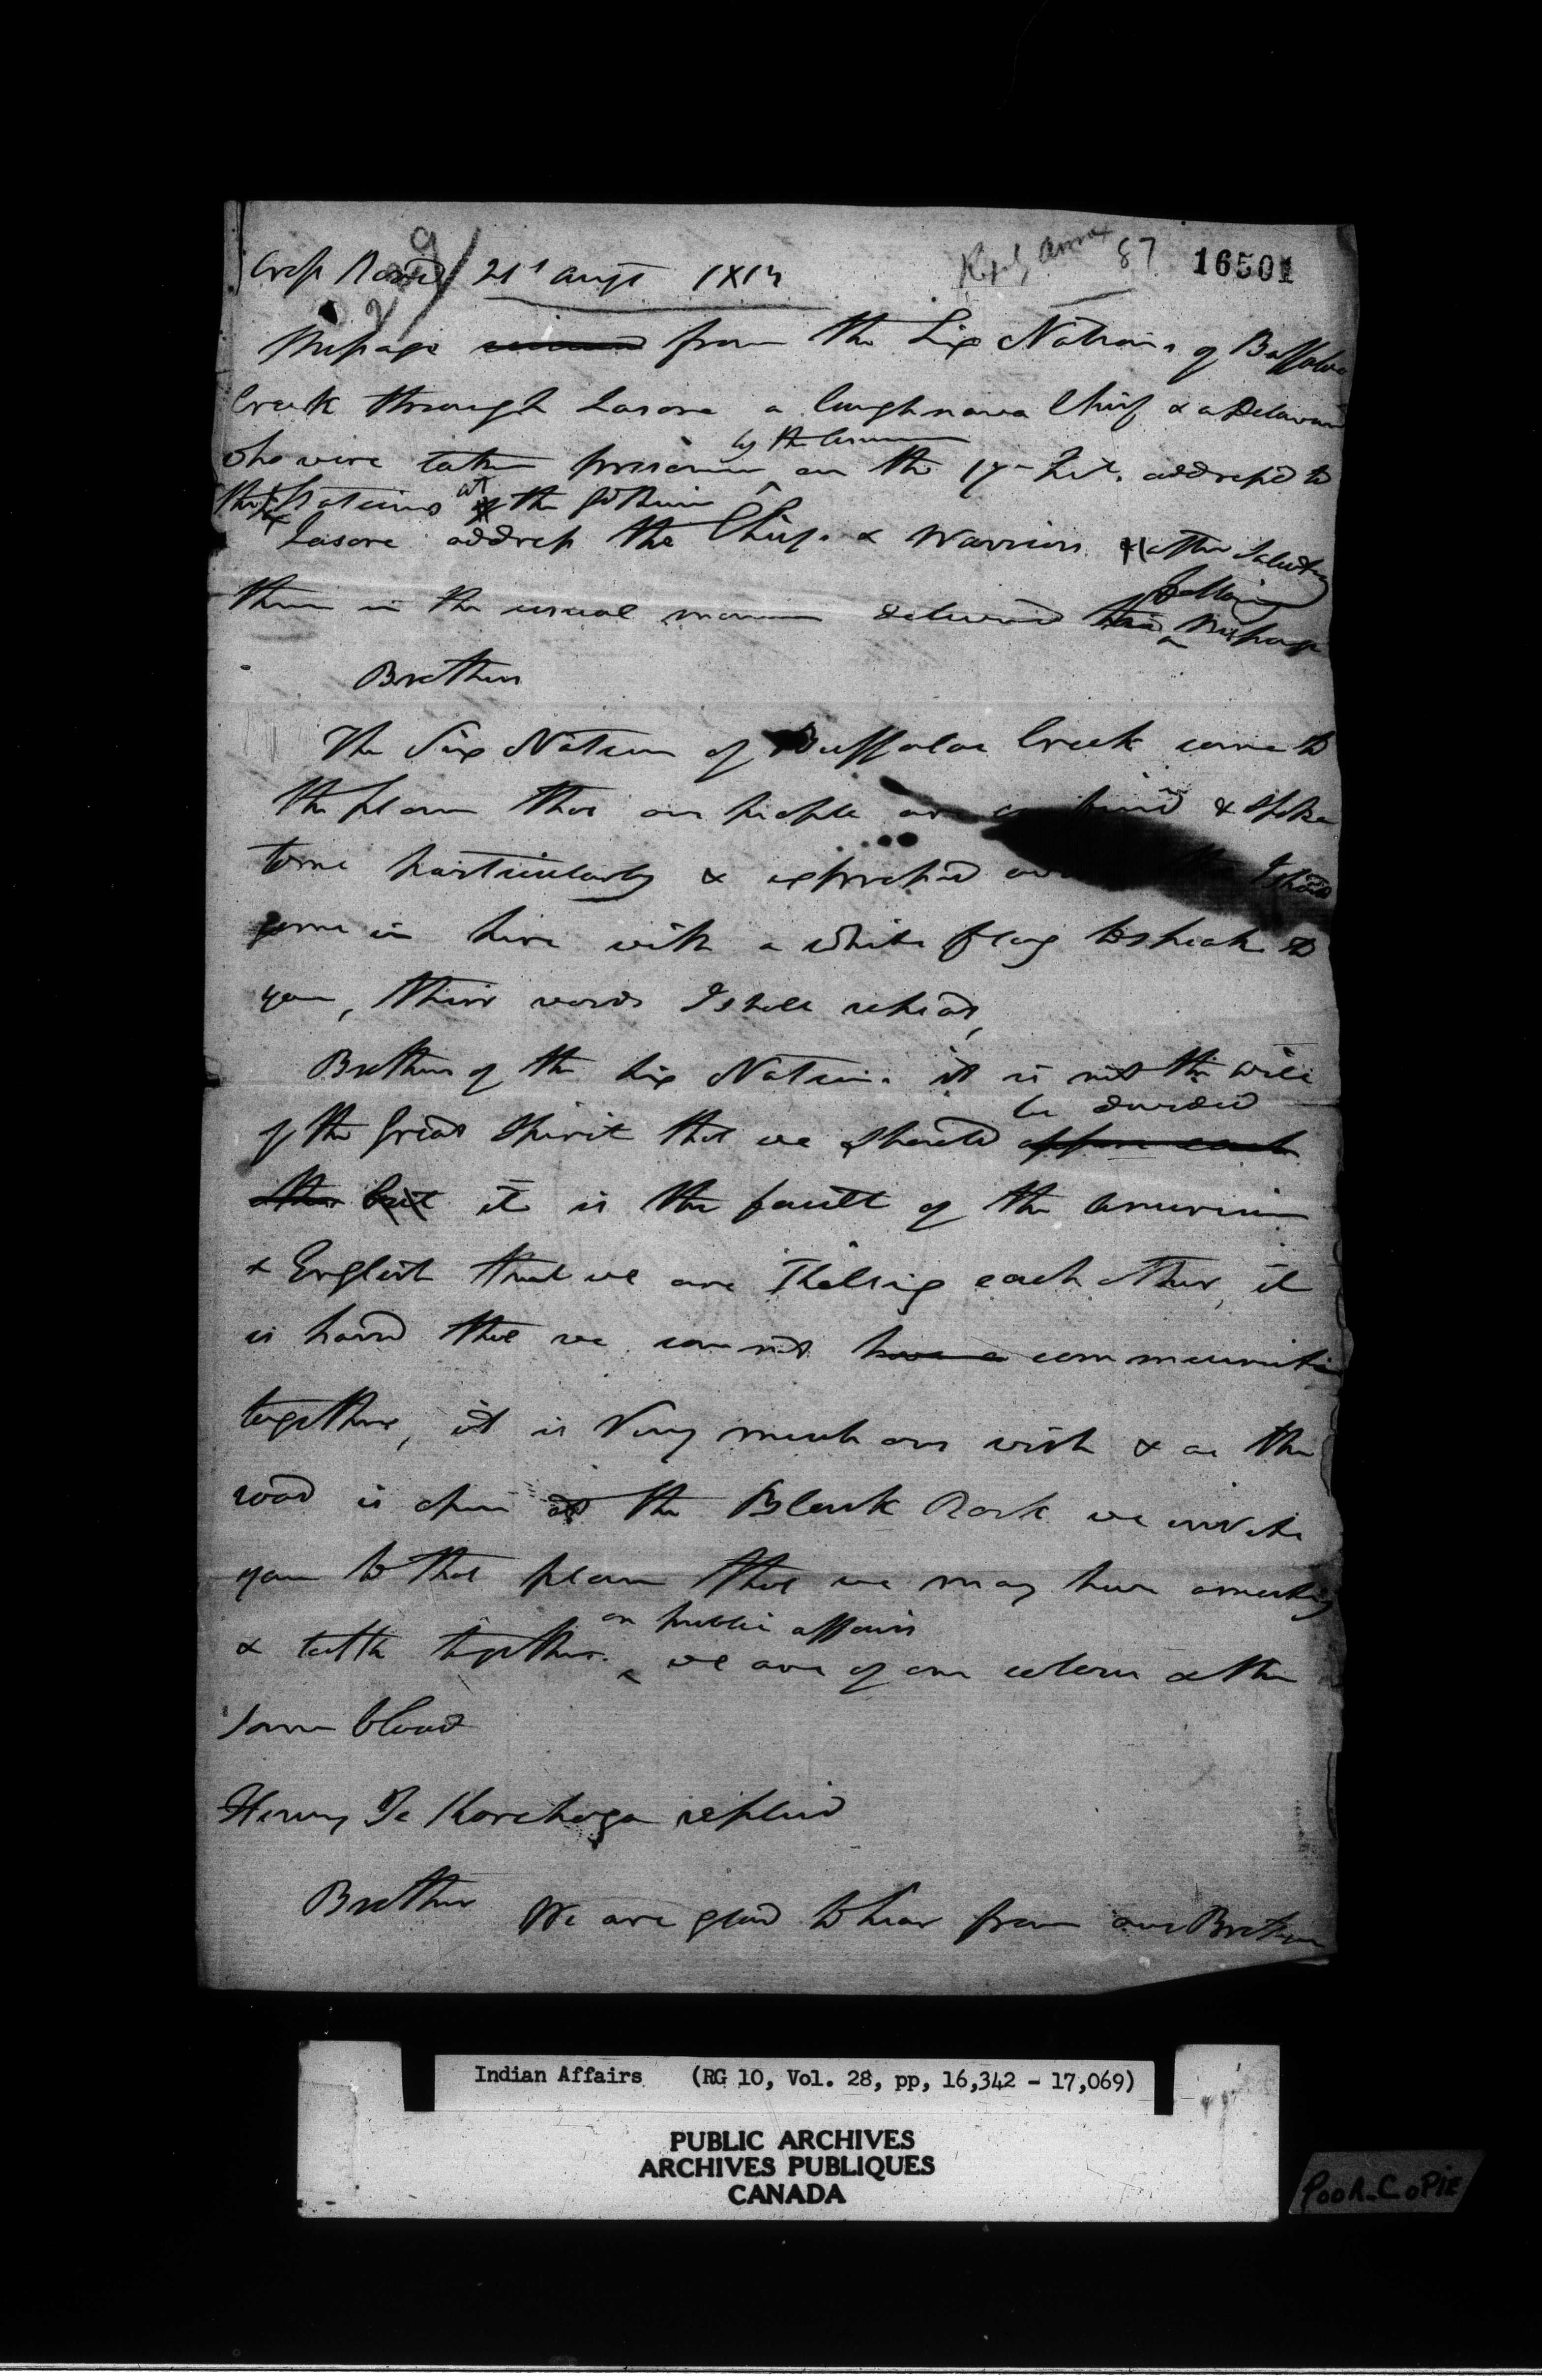 87 16501
Cross Roads 21st Augt 1813
Message received from the Six Nations of Buffaloe
Creek through Lasore a Caughnawa Chief & a Delaware
who were taken prisoner by the American on the 17th Inst. addressed to
the Nations at the
Lasore address the Chiefs & Warriors & after saluting
them in the usual manner delivered the following Message
Brothers
The Six Nations of Buffaloe Creek came to
the place that our people are & spoke
to me particularly & expressed I should
come in here with a white flag to speak to
you, their words I shall repeat,
Brothers of the Six Nations it is not the will
of the Great Spirit that we should be divided oppose each
other but it is the fault of the American
& English that we are killing each other, it
is hard that we can not have a communication
together, it is very much our wish & as the
road is open at the Black Rock we invite
you to that place that we may have a meeting
& talk together on public affairs we are of one colour & the
same blood
Henry Te Karehoga replied
Brother We are glad to hear from our Brothers
Indian Affairs (RG 10, Vol. 28, pp, 16,342 - 17,069)
PUBLIC ARCHIVES
ARCHIVES PUBLIQUES
CANADA
POOR-COPIE